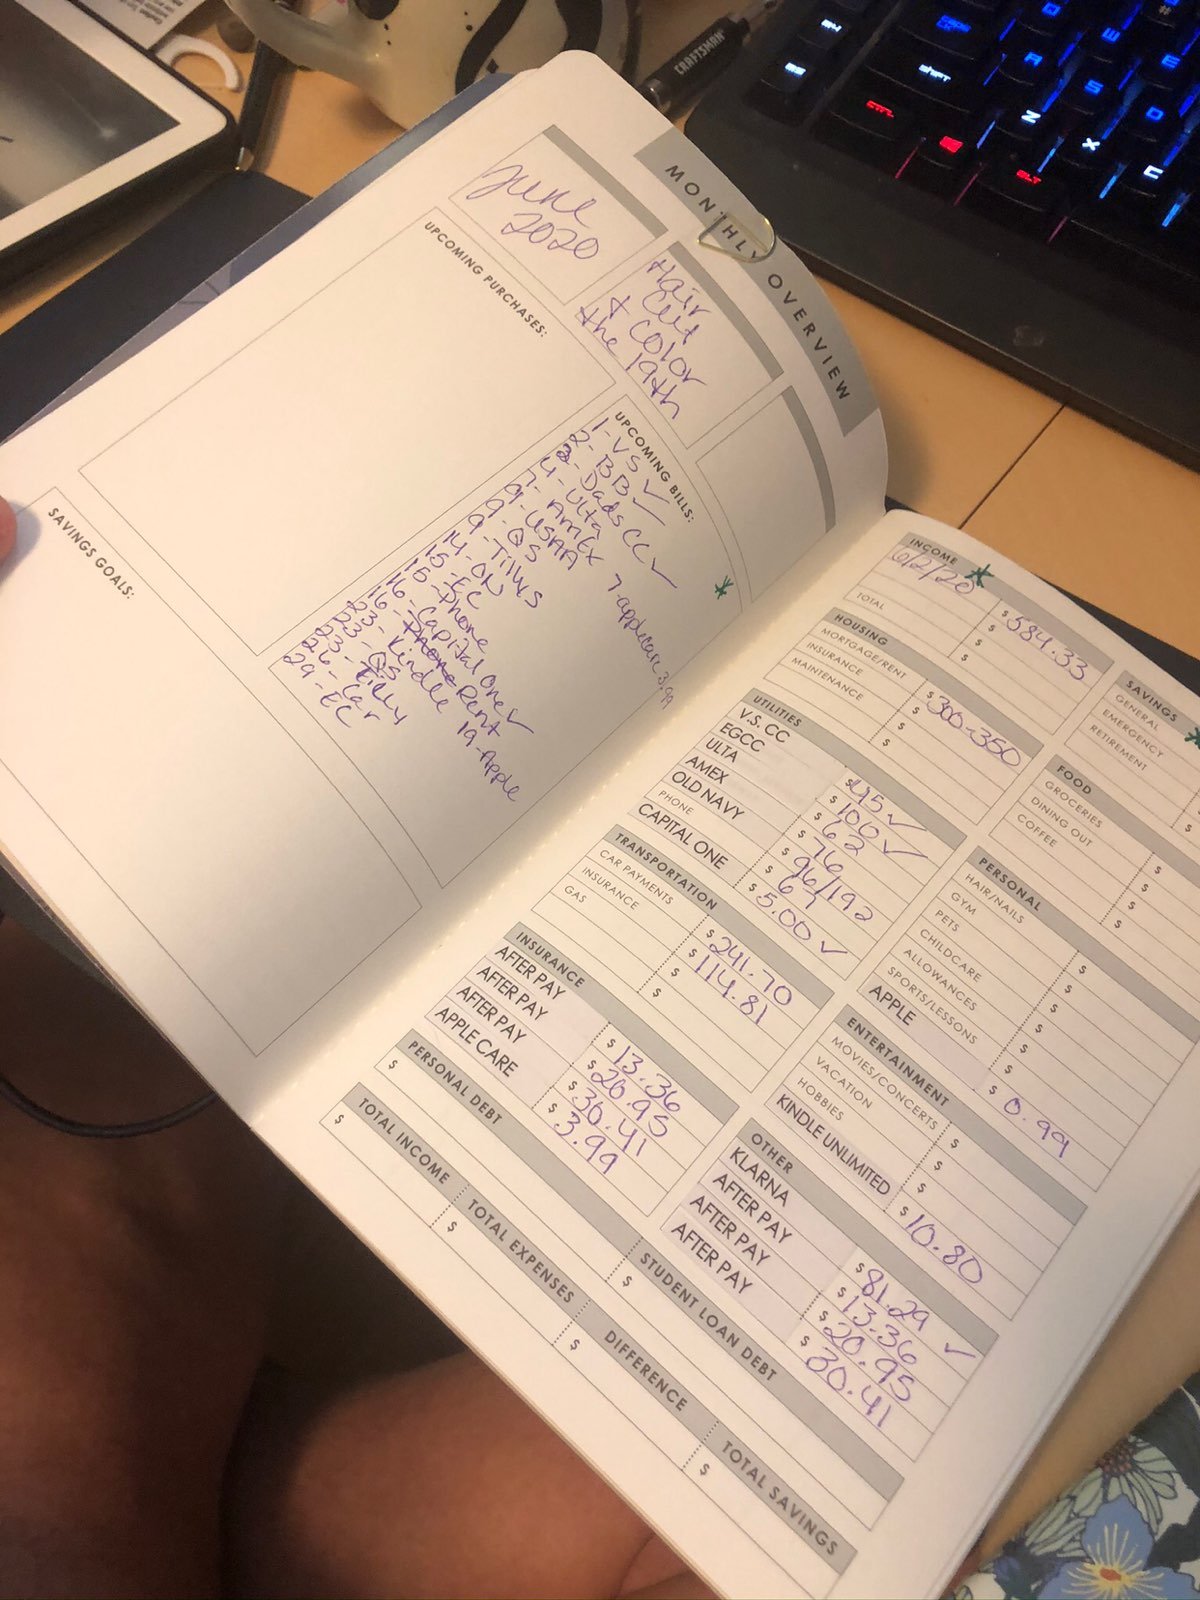 MONTHLY OVERVIEW
June
2020
Hair
Cut
& Color
the 19th
UPCOMING PURCHASES:
UPCOMING BILLS:
1-VS ✓
2- BB ✓
2- Dads CC ✓
4-Ulta
7- AmEx 7-applecare 3.99
9-USAA
9-QS
9-Tillys
14-ON
15-EC
15-Phone
16-Capital One ✓
Rent
Kindle 19-Apple
QS
Tilly
Car
29-EC
SAVINGS GOALS:
INCOME
6/2/20 $584.33
$
TOTAL $
HOUSING
MORTGAGE/RENT $300-350
INSURANCE $
MAINTENANCE $
UTILITIES
V.S. CC $45 ✓
EGCC $100 ✓
ULTA $62
AMEX $76
OLD NAVY $96/192
PHONE $67
CAPITAL ONE $5.00 ✓
TRANSPORTATION
CAR PAYMENTS $241.70
INSURANCE $114.81
GAS $
INSURANCE
AFTER PAY $13.36
AFTER PAY $20.95
AFTER PAY $30.41
APPLE CARE $3.99
PERSONAL DEBT
$
STUDENT LOAN DEBT
$
TOTAL INCOME
$
TOTAL EXPENSES
$
DIFFERENCE
$
TOTAL SAVINGS
$
SAVINGS
GENERAL
EMERGENCY
RETIREMENT
FOOD
GROCERIES $
DINING OUT $
COFFEE $
$
PERSONAL
HAIR/NAILS $
GYM $
PETS $
CHILDCARE $
ALLOWANCES $
SPORTS/LESSONS $
APPLE $0.99
ENTERTAINMENT
MOVIES/CONCERTS $
VACATION $
HOBBIES $
KINDLE UNLIMITED $10.80
OTHER
KLARNA $81.29 ✓
AFTER PAY $13.36
AFTER PAY $20.95
AFTER PAY $30.41
CRAFTSMAN
CAPS
SHIFT
CTL
ALT
Q
W
E
A
S
D
Z
X
C